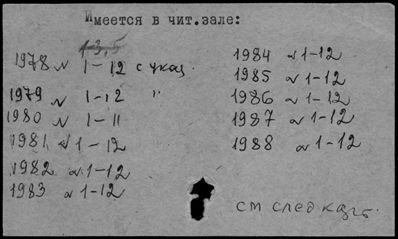 Имеется в чит.зале:
1-3, 5
1978 № 1-12 с указ.
1979 № 1-12 "
1980 № 1-11
1981 № 1-12
1982 № 1-12
1983 № 1-12
1984 № 1-12
1985 № 1-12
1986 № 1-12
1987 № 1-12
1988 № 1-12
см след карт.